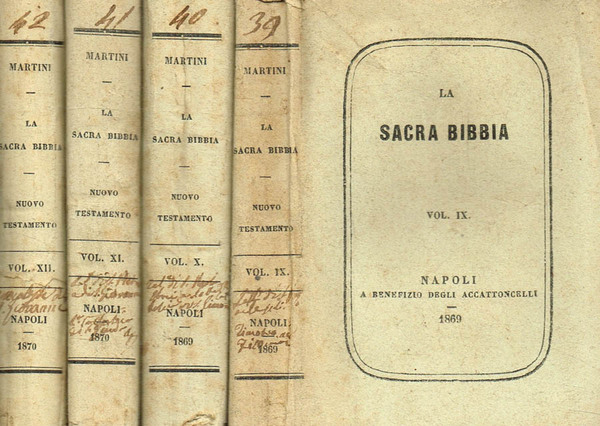 42
MARTINI
LA
SACRA BIBBIA
NUOVO
TESTAMENTO
VOL. XII.
Giovanni
NAPOLI
1870
41
MARTINI
LA
SACRA BIBBIA
NUOVO
TESTAMENTO
VOL. XI.
NAPOLI
1870
40
MARTINI
LA
SACRA BIBBIA
NUOVO
TESTAMENTO
VOL. X.
NAPOLI
1869
39
MARTINI
LA
SACRA BIBBIA
NUOVO
TESTAMENTO
VOL. IX.
NAPOLI
1869
LA
SACRA BIBBIA
VOL. IX.
NAPOLI
A BENEFIZIO DEGLI ACCATTONCELLI
1869